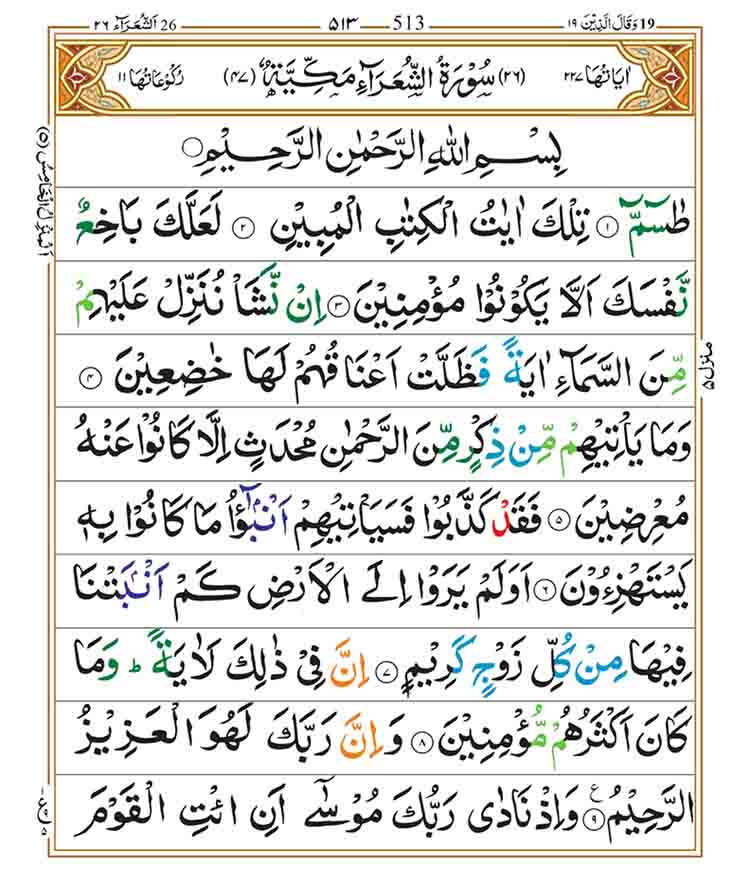 19 وَقَالَ الَّذِيْنَ ١٩
513 ٥١٣
26 اَلشُّعَرَآء ٢٦
اٰيَاتُهَا ٢٢٧
(٢٦) سُوْرَةُ الشُّعَرَآءِ مَكِّيَّةٌ (٤٧)
رُكُوْعَاتُهَا ١١
بِسْمِ اللّٰهِ الرَّحْمٰنِ الرَّحِيْمِ
طٰسٓمّٓ ۝١ تِلْكَ اٰيٰتُ الْكِتٰبِ الْمُبِيْنِ ۝٢ لَعَلَّكَ بَاخِعٌ
نَّفْسَكَ اَلَّا يَكُوْنُوْا مُؤْمِنِيْنَ ۝٣ اِنْ نَّشَاْ نُنَزِّلْ عَلَيْهِمْ
مِّنَ السَّمَآءِ اٰيَةً فَظَلَّتْ اَعْنَاقُهُمْ لَهَا خٰضِعِيْنَ ۝٤
وَمَا يَاْتِيْهِمْ مِّنْ ذِكْرٍ مِّنَ الرَّحْمٰنِ مُحْدَثٍ اِلَّا كَانُوْا عَنْهُ
مُعْرِضِيْنَ ۝٥ فَقَدْ كَذَّبُوْا فَسَيَاْتِيْهِمْ اَنْۢبٰٓؤُا مَا كَانُوْا بِهٖ
يَسْتَهْزِءُوْنَ ۝٦ اَوَلَمْ يَرَوْا اِلَى الْاَرْضِ كَمْ اَنْۢبَتْنَا
فِيْهَا مِنْ كُلِّ زَوْجٍ كَرِيْمٍ ۝٧ اِنَّ فِيْ ذٰلِكَ لَاٰيَةً ؕ وَمَا
كَانَ اَكْثَرُهُمْ مُّؤْمِنِيْنَ ۝٨ وَاِنَّ رَبَّكَ لَهُوَ الْعَزِيْزُ
الرَّحِيْمُ ۝٩ ع وَاِذْ نَادٰى رَبُّكَ مُوْسٰٓى اَنِ ائْتِ الْقَوْمَ
اَلْمَنْزِلُ الْخَامِسُ (٥)
منزل ٥